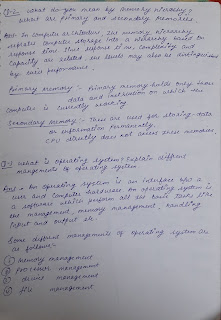 Q-2 what do you mean by memory hierarchy?
what are primary and secondary memories.
Ans:- In computer architecture the memory hierarchy
separates computer storage into a hierarchy based on
response time. Since response time, complexity and
capacity are related, the levels may also be distinguished
by their performance.
Primary memory :- Primary memory holds only those
data and instruction on which the
computer is currently working
Secondary memory :- These are used for storing data
or information permanently.
CPU directly does not access these memories.
Q-3 what is operating system? Explain different
managements of operating system
Ans:- An operating system is an interface b/w a
user and computer hardware. An operating system is
a software which perform all the basic tasks like
file management, memory management, handling
input and output
Some different managements of operating system are
as follows:-
① Memory management
② Processor management
③ Device management
④ File management